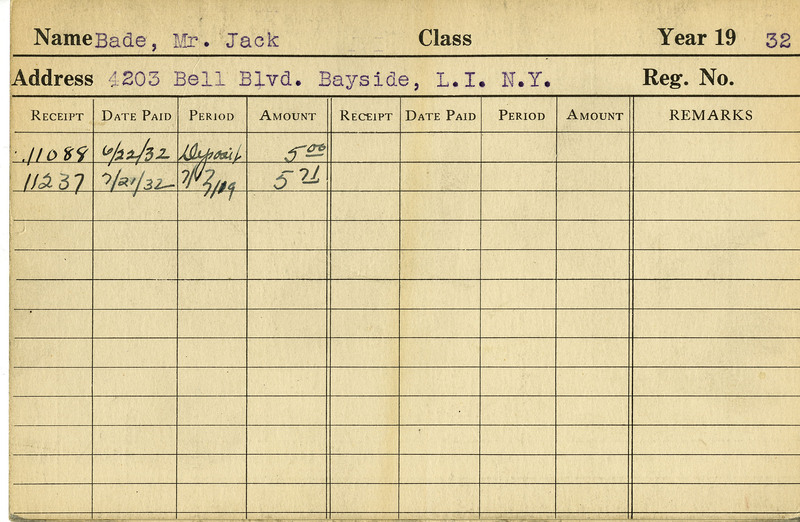 Name Bade, Mr. Jack Class Year 19 32
Address 4203 Bell Blvd. Bayside, L.I. N.Y. Reg. No.
RECEIPT DATE PAID PERIOD AMOUNT RECEIPT DATE PAID PERIOD AMOUNT REMARKS
11088 6/22/32 Deposit 5 00
11237 7/21/32 7/7 7/19 5 71